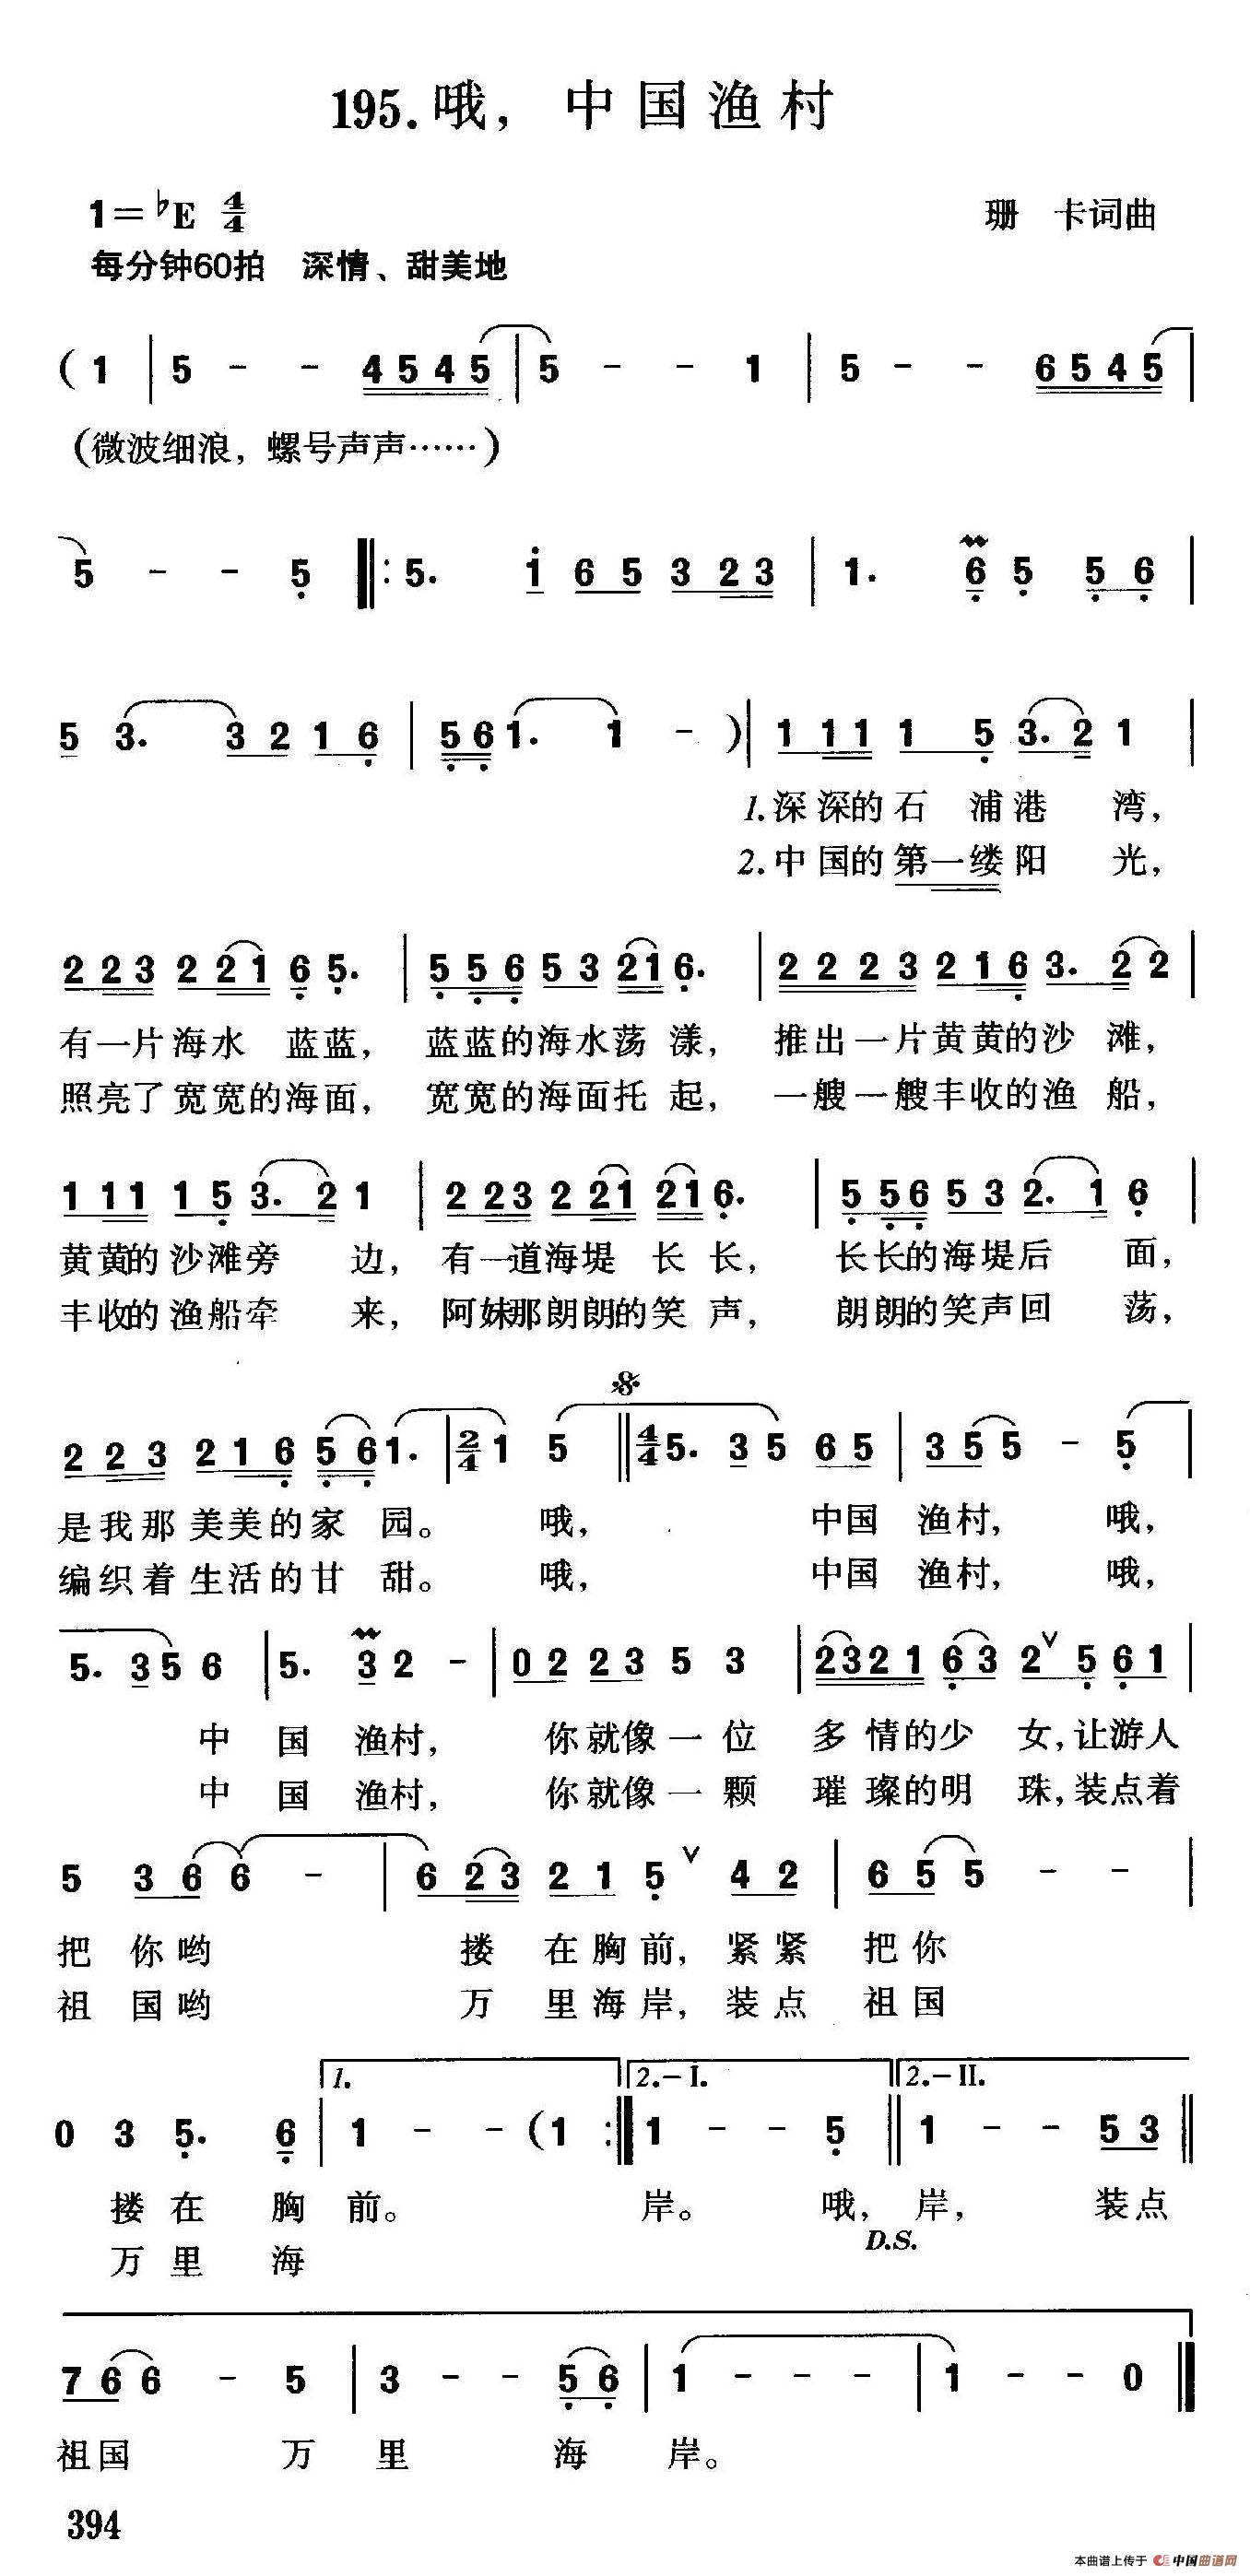 195.哦，中国渔村
1=♭E 4/4 珊 卡词曲
每分钟60拍 深情、甜美地
(1 | 5 - - 4545 | 5 - - 1 | 5 - - 6545 |
（微波细浪，螺号声声……）
5 - - 5 ‖: 5. 1 65 323 | 1. 6 5 56 |
5 3. 32 16 | 561. 1 - ) | 111 15 3.2 1 |
1.深深的石浦港 湾，
2.中国的第一缕阳 光，
223 221 65. | 556 53 216. | 2223 216 3.22 |
有一片海水 蓝蓝， 蓝蓝的海水荡漾， 推出一片黄黄的沙 滩，
照亮了宽宽的海面， 宽宽的海面托起， 一艘一艘丰收的渔 船，
111 15 3.2 1 | 223 221 216. | 556 53 2.1 6 |
黄黄的沙滩旁 边， 有一道海堤 长长， 长长的海堤后 面，
丰收的渔船牵 来， 阿妹那朗朗的笑声， 朗朗的笑声回 荡，
223 216 561. | 2/4 1 5 ‖ 4/4 5. 35 65 | 355 - 5 |
是我那美美的家 园。 哦， 中国 渔村， 哦，
编织着生活的甘 甜。 哦， 中国 渔村， 哦，
5. 35 6 | 5. 3 2 - | 02 23 5 3 | 2321 63 2 ∨ 5 61 |
中 国 渔村， 你就像一位 多情的少 女，让游人
中 国 渔村， 你就像一颗 璀璨的明 珠，装点着
5 36 6 - | 623 21 5 ∨ 42 | 65 5 - - |
把 你哟 搂 在胸前，紧紧 把你
祖 国哟 万 里海岸，装点 祖国
1. 2.-I. 2.-II.
0 3 5. 6 | 1 - - (1 :‖ 1 - - 5 ‖ 1 - - 53 ‖
搂在 胸 前。 岸。 哦， 岸， 装点
D.S.
万里 海
76 6 - 5 | 3 - - 56 | 1 - - - | 1 - - 0 ‖
祖国 万 里 海 岸。
394
本曲谱上传于 中国曲谱网